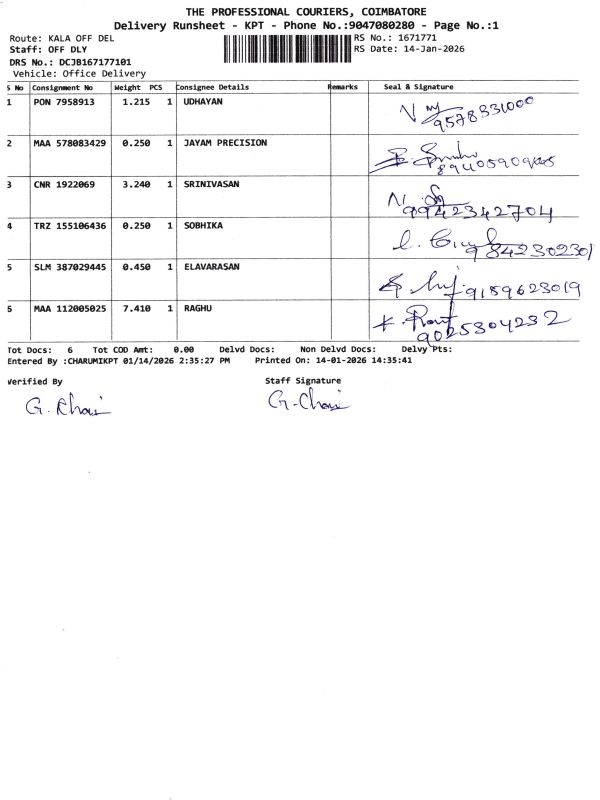 THE PROFESSIONAL COURIERS, COIMBATORE
Delivery Runsheet - KPT - Phone No.:9047080280 - Page No.:1
Route: KALA OFF DEL
RS No.: 1671771
Staff: OFF DLY
RS Date: 14-Jan-2026
DRS No.: DCJB167177101
Vehicle: Office Delivery
S No Consignment No Weight PCS Consignee Details Remarks Seal & Signature
1 PON 7958913 1.215 1 UDHAYAN
9578331000
2 MAA 578083429 0.250 1 JAYAM PRECISION
3 CNR 1922069 3.240 1 SRINIVASAN
9942342704
4 TRZ 155106436 0.250 1 SOBHIKA
9842302301
5 SLM 387029445 0.450 1 ELAVARASAN
9159623019
6 MAA 112005025 7.410 1 RAGHU
9025304232
Tot Docs: 6 Tot COD Amt: 0.00 Delvd Docs: Non Delvd Docs: Delvy Pts:
Entered By :CHARUMIKPT 01/14/2026 2:35:27 PM Printed On: 14-01-2026 14:35:41
Verified By Staff Signature